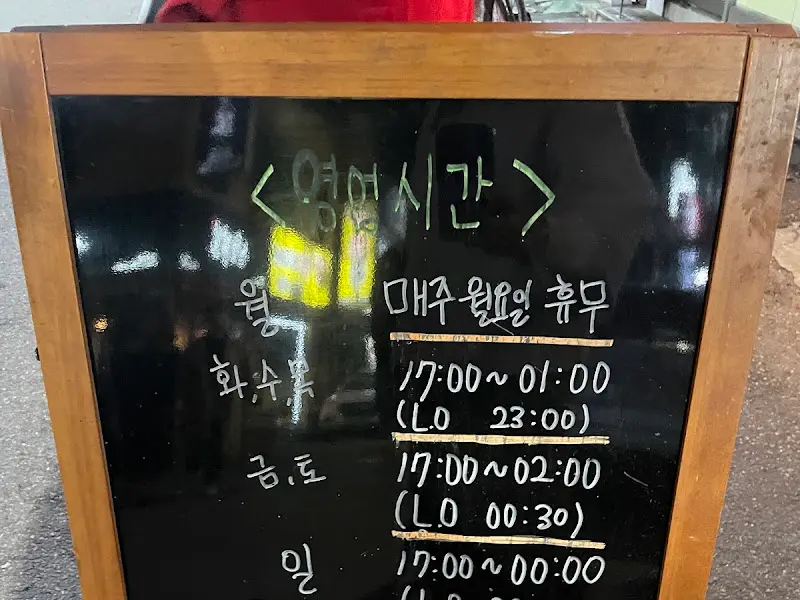 <영업시간>
월 매주 월요일 휴무
화,수,목 17:00~01:00
(L.O 23:00)
금,토 17:00~02:00
(L.O 00:30)
일 17:00~00:00